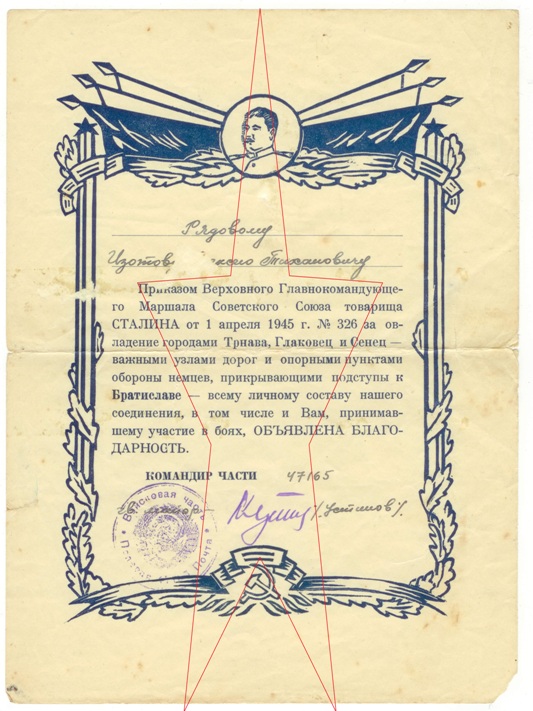 Рядовому
Изотов Тихоновичу
Приказом Верховного Главнокомандующе-
го Маршала Советского Союза товарища
СТАЛИНА от 1 апреля 1945 г. № 326 за ов-
ладение городами Трнава, Глаковец и Сенец —
важными узлами дорог и опорными пунктами
обороны немцев, прикрывающими подступы к
Братиславе — всему личному составу нашего
соединения, в том числе и Вам, принимав-
шему участие в боях, ОБЪЯВЛЕНА БЛАГО-
ДАРНОСТЬ.
КОМАНДИР ЧАСТИ 47165
/Устинов/.
Войсковая часть
Полевая Почта